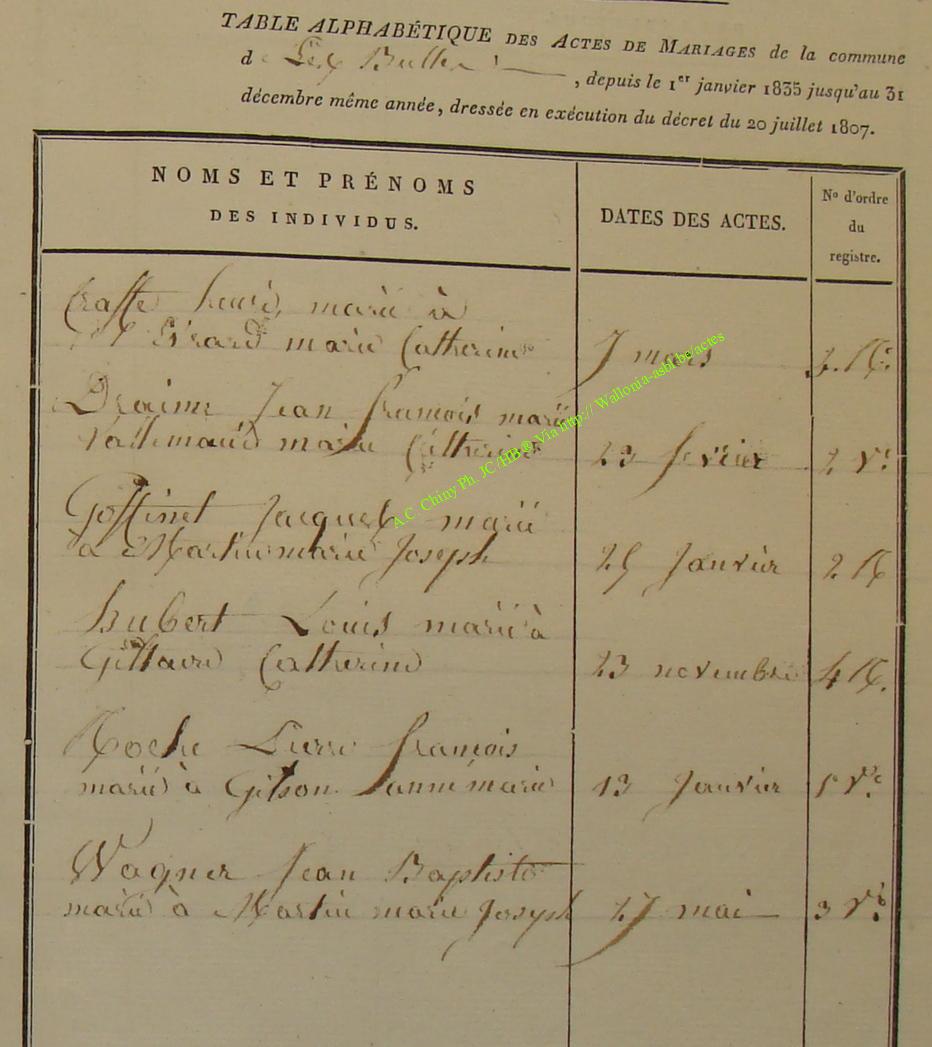 TABLE ALPHABÉTIQUE DES ACTES DE MARIAGES de la commune
d Les Bulles, depuis le 1er janvier 1835 jusqu'au 31
décembre même année, dressée en exécution du décret du 20 juillet 1807.
NOMS ET PRÉNOMS
DES INDIVIDUS.
DATES DES ACTES.
No d'ordre
du
registre.
henri, marié à
marie Catherine 7 mars
Jean francois marié
marie Catherine 23 fevrier 2 Vo
Goffinet Jacques marié
à Martin marie Joseph 25 Janvier 2 R
hubert Louis marié à
Catherine 23 novembre 4 R.
Roche Pierre francois
marié à Gilson marie 13 Janvier 1 Vo
Wagner Jean Baptiste
marié à Martin marie Joseph 27 mai 3 Vo
A.C. Chiny Ph. JC /HB ® Via http:// Wallonia-asbl.be/actes